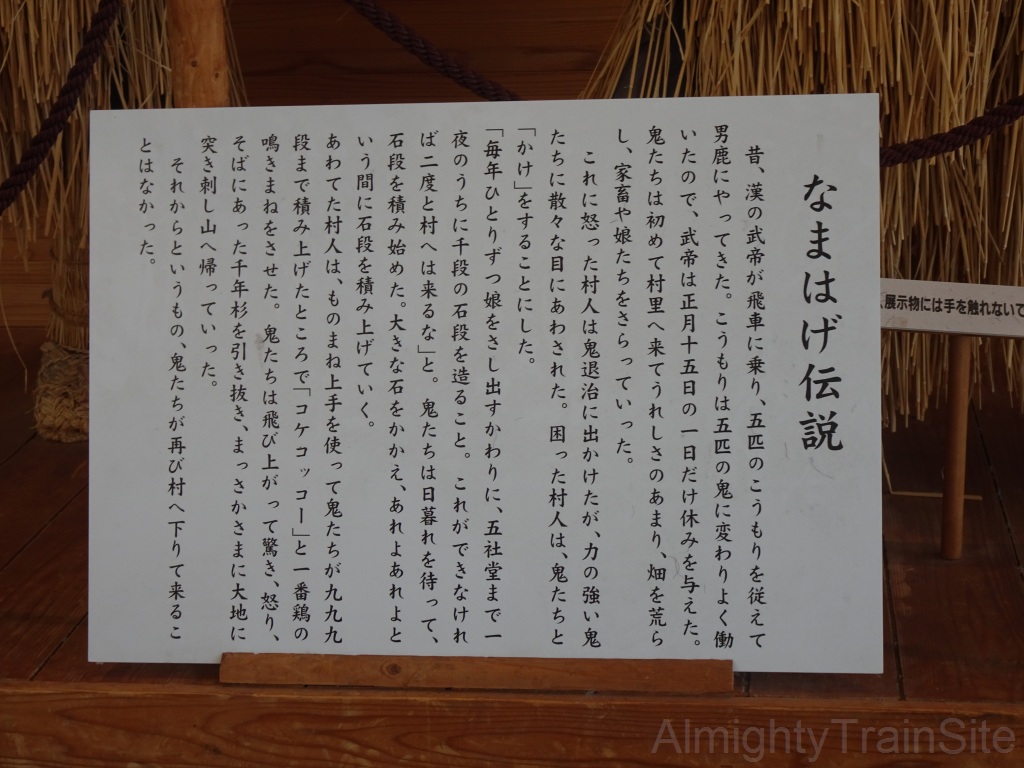 なまはげ伝説
昔、漢の武帝が飛車に乗り、五匹のこうもりを従えて
男鹿にやってきた。こうもりは五匹の鬼に変わりよく働
いたので、武帝は正月十五日の一日だけ休みを与えた。
鬼たちは初めて村里へ来てうれしさのあまり、畑を荒ら
し、家畜や娘たちをさらっていった。
これに怒った村人は鬼退治に出かけたが、力の強い鬼
たちに散々な目にあわされた。困った村人は、鬼たちと
「かけ」をすることにした。
「毎年ひとりずつ娘をさし出すかわりに、五社堂まで一
夜のうちに千段の石段を造ること。これができなけれ
ば二度と村へは来るな」と。鬼たちは日暮れを待って、
石段を積み始めた。大きな石をかかえ、あれよあれよと
いう間に石段を積み上げていく。
あわてた村人は、ものまね上手を使って鬼たちが九九九
段まで積み上げたところで「コケコッコー」と一番鶏の
鳴きまねをさせた。鬼たちは飛び上がって驚き、怒り、
そばにあった千年杉を引き抜き、まっさかさまに大地に
突き刺し山へ帰っていった。
それからというもの、鬼たちが再び村へ下りて来るこ
とはなかった。
展示物には手を触れないで
AlmightyTrainSite